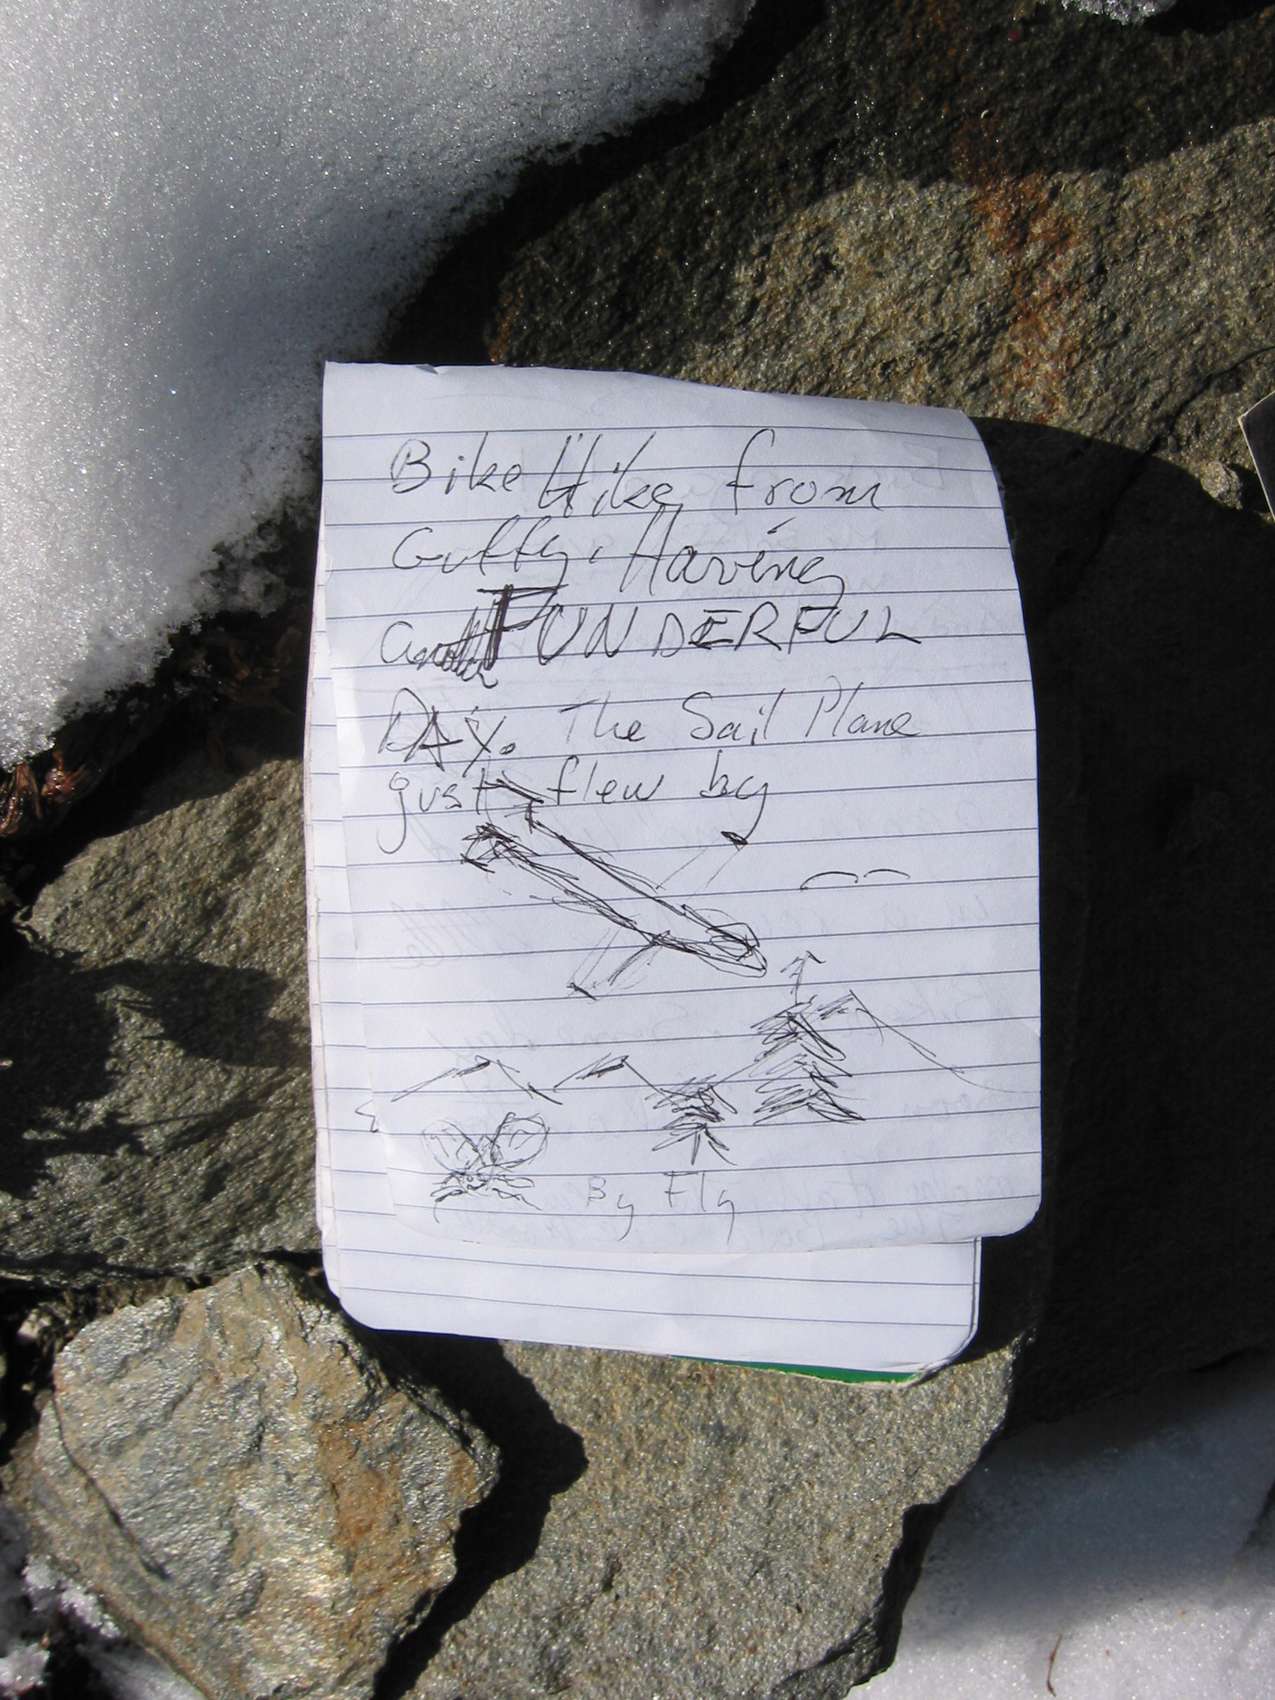 Bike Hike from
Guffy. Having
a FUNDERFUL
DAY. The Sail Plane
just flew by
By Fly